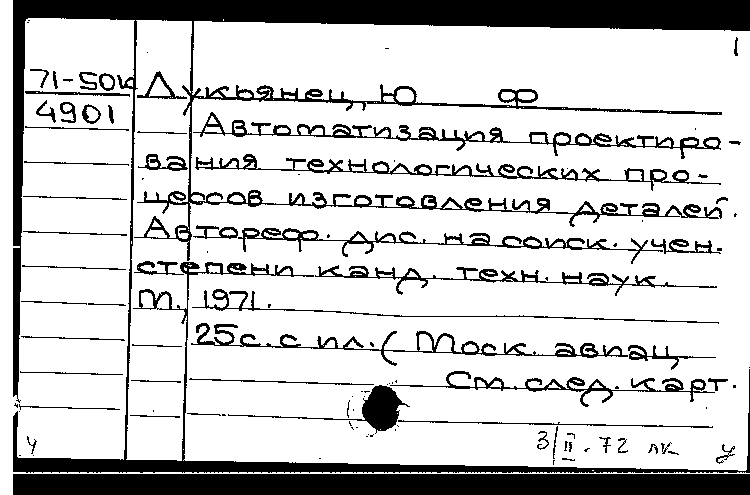 1
71-50к Лукьянец, Ю Ф
4901
Автоматизация проектиро-
вания технологических про-
цессов изготовления деталей.
Автореф. дис. на соиск. учен.
степени канд. техн. наук.
М., 1971.
25с. с ил. (Моск. авиац
См. след. карт.
ч 3/II.72 лк у